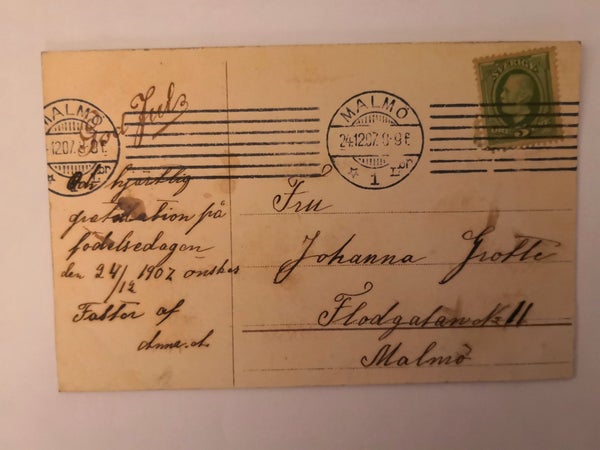 God Jul
MALMÖ
24.12.07. 8-9 F.
1
LBR.
MALMÖ
24.12.07. 8-9 F.
1
LBR.
SVERIGE
5 ÖRE
Och hjärtlig
gratulation på
födelsedagen
den 24/12 1907 önskas
Faster af
Fru
Johanna Grotte
Flodgatan No 11
Malmö